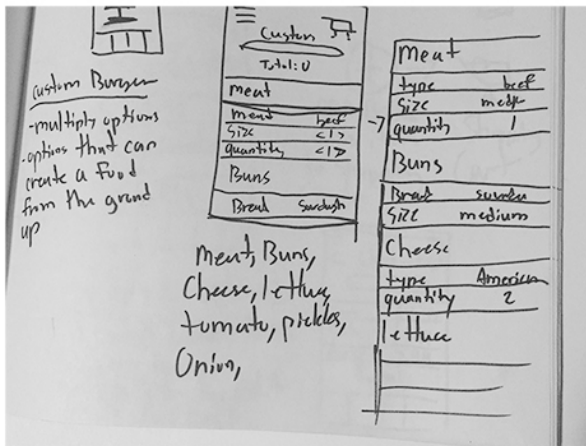 Custom Burger
-multiply options
-options that can
create a food
from the ground
up
Custom
Total: 0
meat
meat beef
Size <1>
quantity <1>
Buns
Bread
Meat, Buns,
Cheese, lettuce,
tomato, pickles,
Onion,
Meat
type beef
Size
quantity 1
Buns
Bread
Size medium
Cheese
type American
quantity 2
lettuce